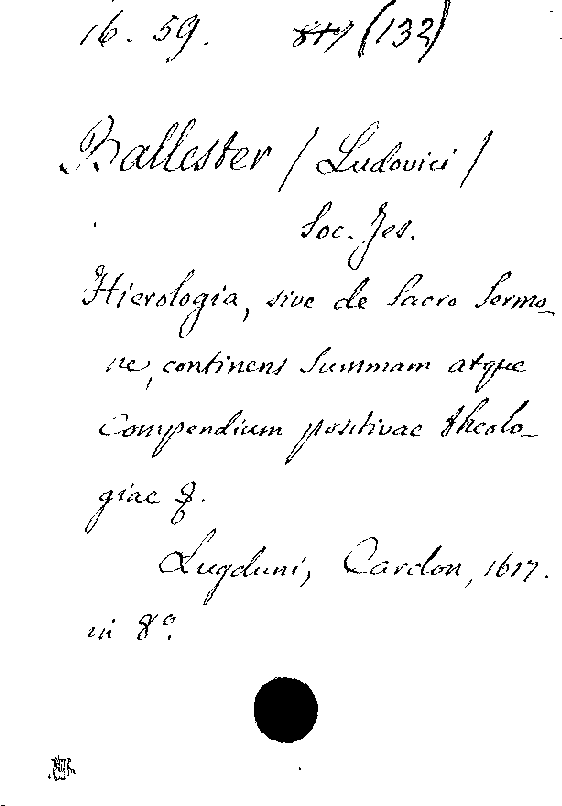 16. 59. (132)
Ballester / Ludovici /
Soc. Jes.
Hierologia, sive de Sacro Sermo_
ne, continens Summam atque
Compendium positivae theolo_
giae &.
Lugduni, Cardon, 1617.
in 8º.